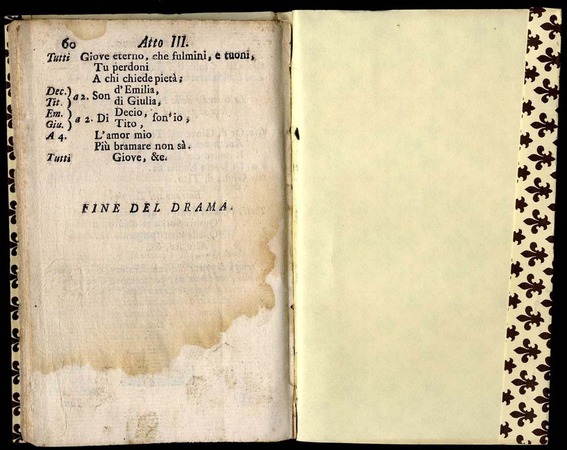 60 Atto III.
Tutti Giove eterno, che fulmini, e tuoni,
Tu perdoni
A chi chiede pietà;
Dec. } a 2. Son d'Emilia,
Tit. } di Giulia,
Em. } a 2. Di Decio, son'io;
Giu. } Tito,
A 4. L'amor mio
Più bramare non sà.
Tutti Giove, &c.
FINE DEL DRAMA.